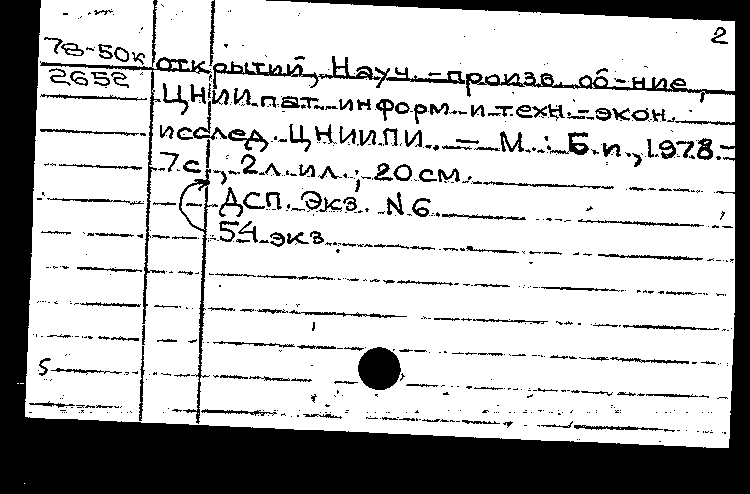 2
78-50к открытий, Науч.-произв. об-ние,
2652 ЦНИИ пат. информ. и техн.-экон.
исслед. ЦНИИПИ. - М.: Б.и., 1978.-
7с., 2л. ил.; 20см.
ДСП. Экз. N6
54 экз
5